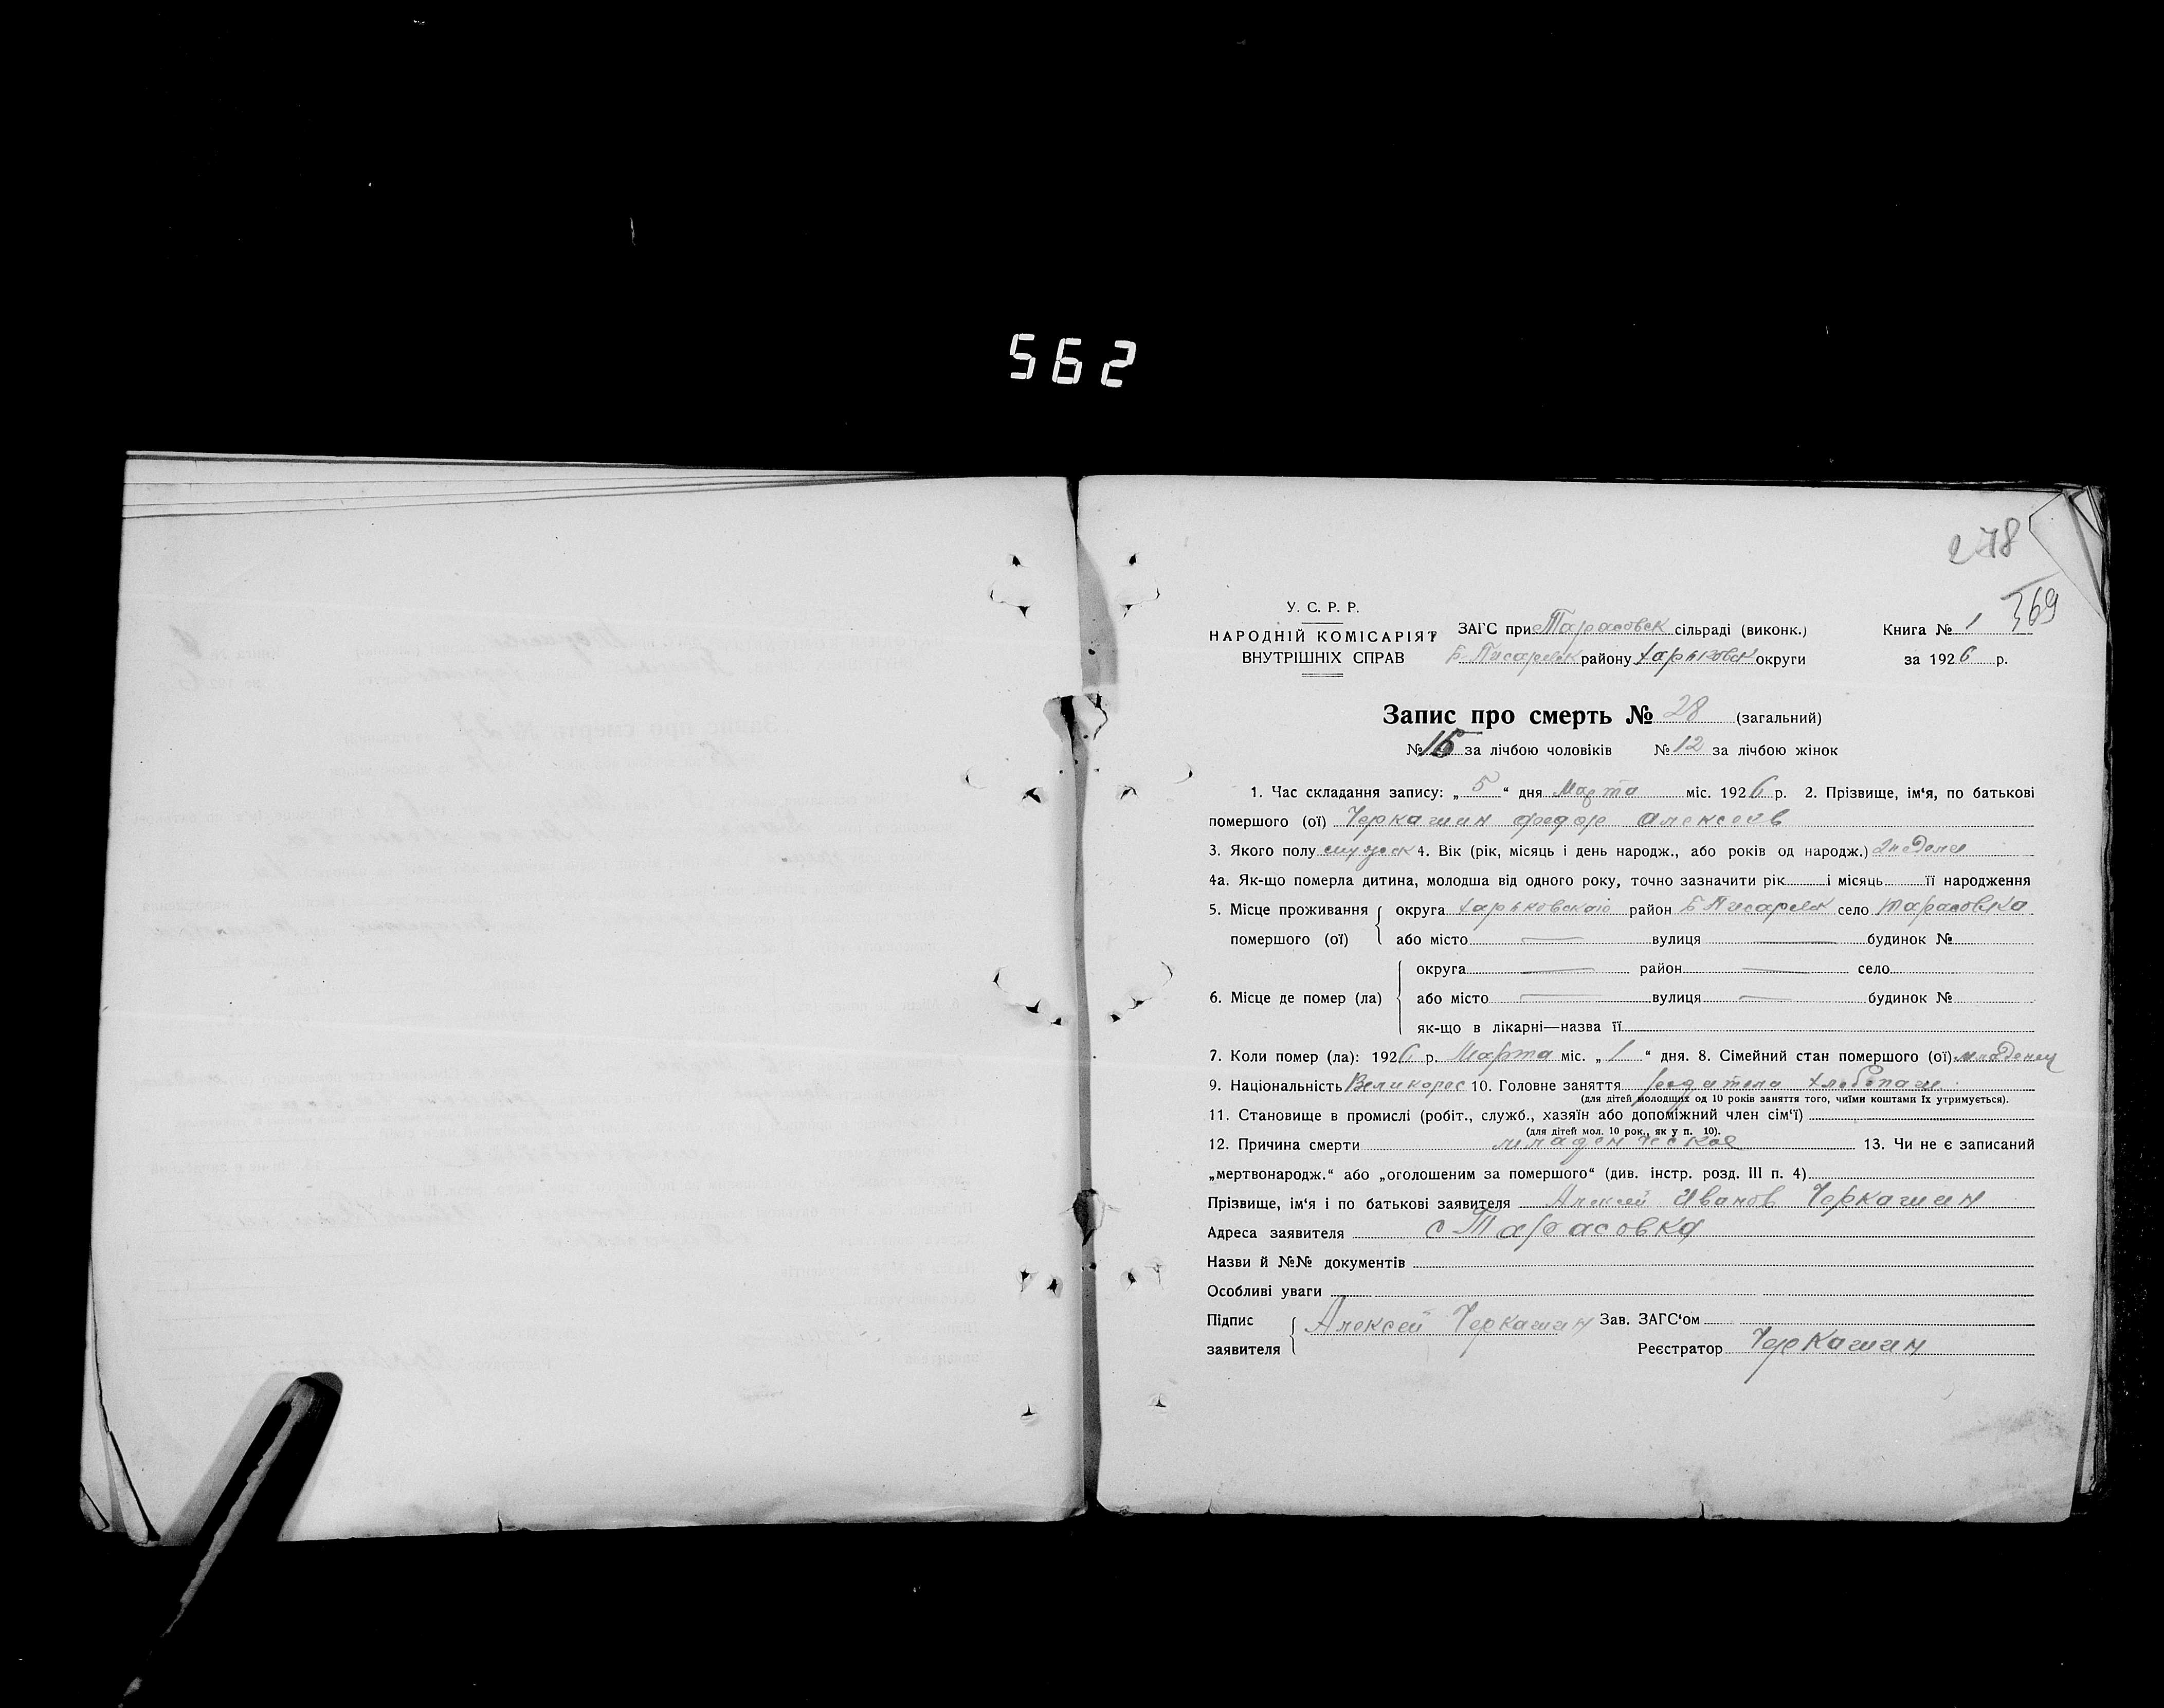 562
278
369
У. С. Р. Р.
НАРОДНІЙ КОМІСАРІЯТ
ВНУТРІШНІХ СПРАВ
ЗАГС при Тарасовск сільраді (виконк.)
Б Писаревск району Харьковск округи
Книга № 1
за 1926 р.
Запис про смерть № 28 (загальний)
№ 16 за лічбою чоловіків № 12 за лічбою жінок
1. Час складання запису: „ 5 “ дня Марта міс. 1926 р. 2. Прізвище, ім'я, по батькові
помершого (ої) Черкашин Федор Алексеев
3. Якого полу мужск 4. Вік (рік, місяць і день народж., або років од народж.) 2 недели
4а. Як-що померла дитина, молодша від одного року, точно зазначити рік і місяць її народження
5. Місце проживання помершого (ої) округа Харьковского район Б Писаревск село Тарасовка
або місто — вулиця — будинок №
6. Місце де помер (ла) округа — район — село
або місто — вулиця — будинок №
як-що в лікарні—назва її
7. Коли помер (ла): 1926 р. Марта міс. „ 1 “ дня. 8. Сімейний стан помершого (ої) младенец
9. Національність Великорос 10. Головне заняття родителя хлебопаш
(для дітей молодших од 10 років заняття того, чиїми коштами їх утримується).
11. Становище в промислі (робіт., служб., хазяїн або допоміжний член сім'ї)
(для дітей мол. 10 рок., як у п. 10).
12. Причина смерти младенческое 13. Чи не є записаний
„мертвонародж.“ або „оголошеним за помершого“ (див. інстр. розд. III п. 4)
Прізвище, ім'я і по батькові заявителя Алексей Иванов Черкашин
Адреса заявителя с Тарасовка
Назви й №№ документів
Особливі уваги
Підпис заявителя Алексей Черкашин Зав. ЗАГС'ом
Реєстратор Черкашин